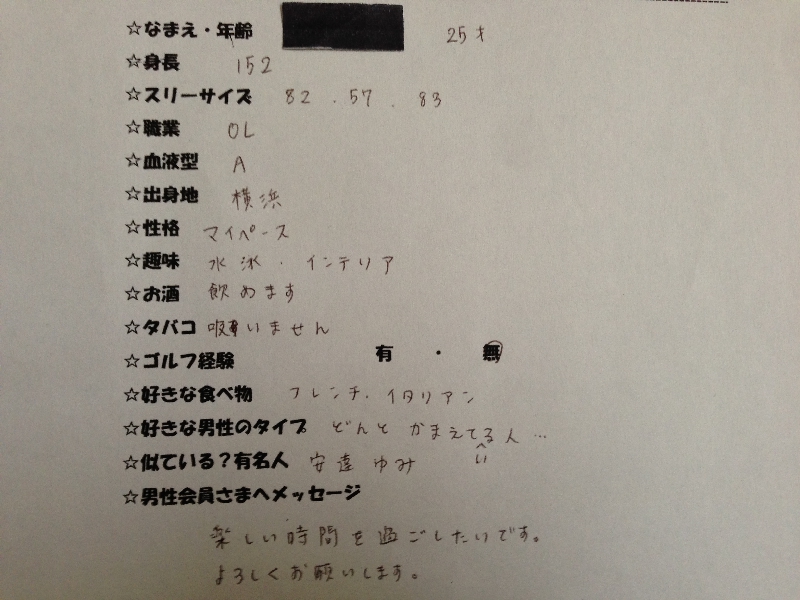 ☆なまえ・年齢 25才
☆身長 152
☆スリーサイズ 82 . 57 . 83
☆職業 OL
☆血液型 A
☆出身地 横浜
☆性格 マイペース
☆趣味 水泳・インテリア
☆お酒 飲めます
☆タバコ 吸いません
☆ゴルフ経験 有 ・ 無
☆好きな食べ物 フレンチ・イタリアン
☆好きな男性のタイプ どんと かまえている人…
☆似ている?有名人 安達ゆみ
☆男性会員さまへメッセージ
楽しい時間を過ごしたいです。
よろしくお願いします。